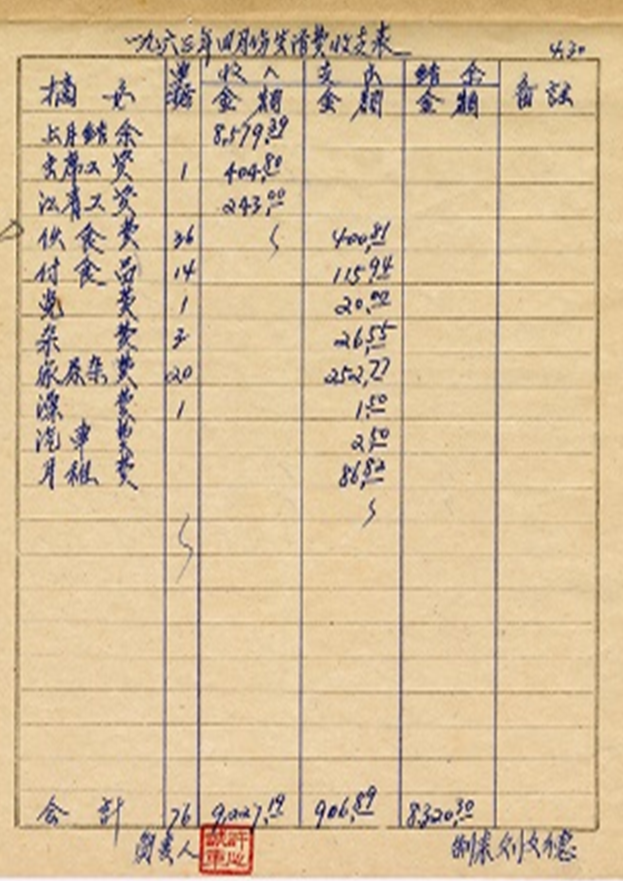 一九六三年四月份生活费收支表 4.30
摘要 单据 收入金额 支出金额 结余金额 备注
上月结余 8,579.39
主席工资 1 404.80
江青工资 243.00
伙食费 36 400.81
付食品 14 115.94
党费 1 20.00
杂费 3 26.55
杂费 20 252.77
澡费 1 1.50
汽車费 2.50
月租费 86.82
合計 76 9,227.19 906.89 8320.30
負责人 制表刘文德